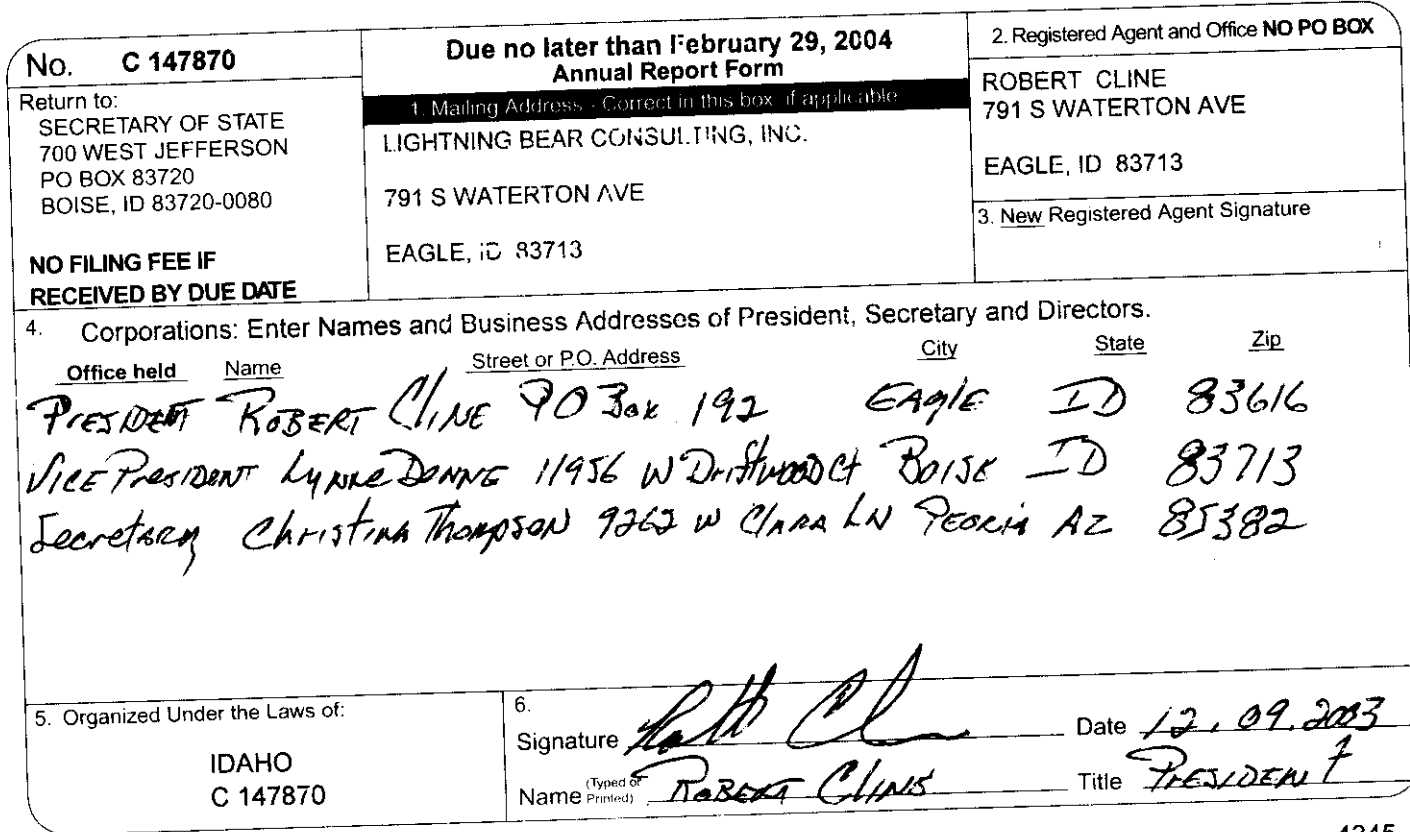 No. C 147870
Return to:
SECRETARY OF STATE
700 WEST JEFFERSON
PO BOX 83720
BOISE, ID 83720-0080
NO FILING FEE IF
RECEIVED BY DUE DATE
Due no later than February 29, 2004
Annual Report Form
1. Mailing Address - Correct in this box if applicable
LIGHTNING BEAR CONSULTING, INC.
791 S WATERTON AVE
EAGLE, ID 83713
2. Registered Agent and Office NO PO BOX
ROBERT CLINE
791 S WATERTON AVE
EAGLE, ID 83713
3. New Registered Agent Signature
4. Corporations: Enter Names and Business Addresses of President, Secretary and Directors.
Office held Name Street or P.O. Address City State Zip
President Robert Cline PO Box 192 Eagle ID 83616
Vice President Lynne Denne 11956 W Driftwood Ct Boise ID 83713
Secretary Christina Thompson 9262 W Clara LN Peoria AZ 85382
5. Organized Under the Laws of:
IDAHO
C 147870
6.
Signature Date 12.09.2003
Name (Typed or Printed) Robert Cline Title President